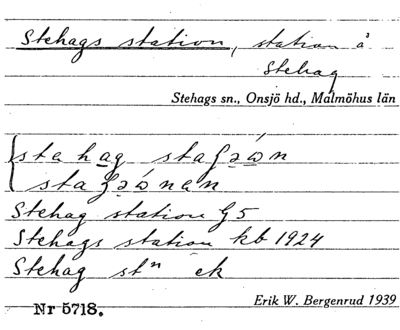 Stehags station, station å
Stehag
Stehags sn., Onsjö hd., Malmöhus län
stahag staʃəώn
staʃəώnan
Stehag station G5
Stehags station kb 1924
Stehag stn ek
Erik W. Bergenrud 1939
Nr 5718.